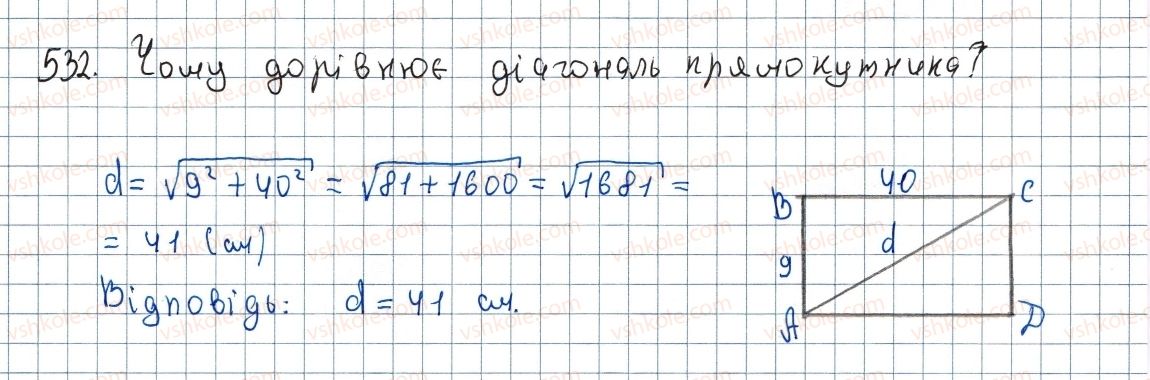 532. Чому дорівнює діагональ прямокутника?
d = √9² + 40² = √81 + 1600 = √1681 =
= 41 (см)
Відповідь: d = 41 см.
40
B C
d
9
A D